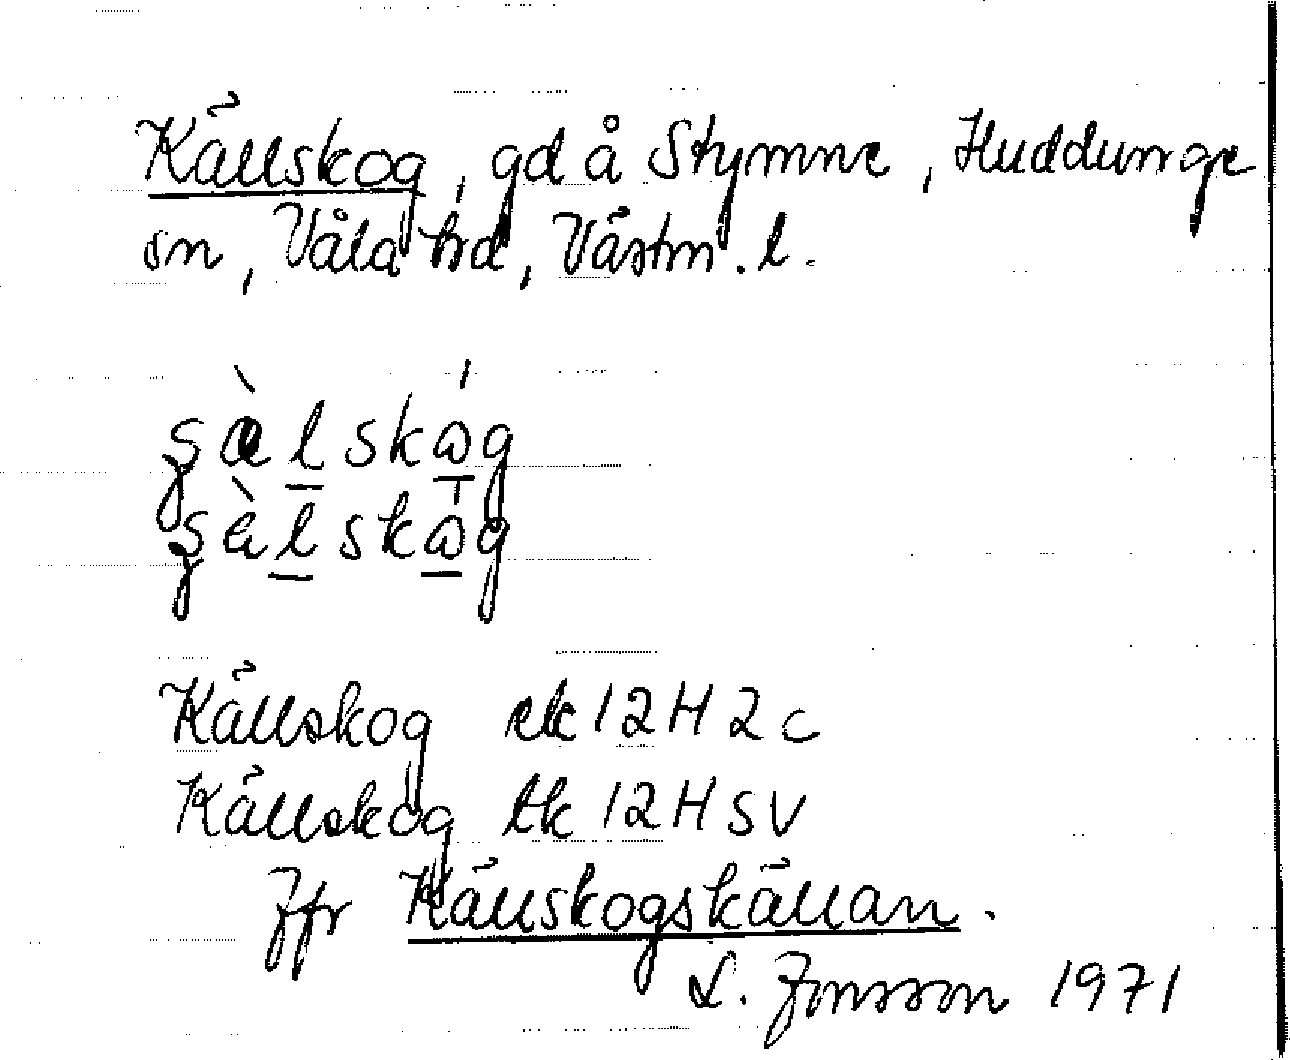 Källskog, gd å Stymne, Huddunge
sn, Våla hd, Västm. l.
Källskog ek 12H2c
Källskog tk 12HSV
Jfr Källskogskällan.
L. Jonsson 1971